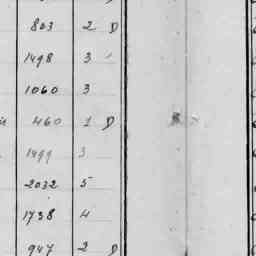 803 2 D
1498 3
1060 3
460 1 D
1499 3
2032 5
1738 4
947 2 D